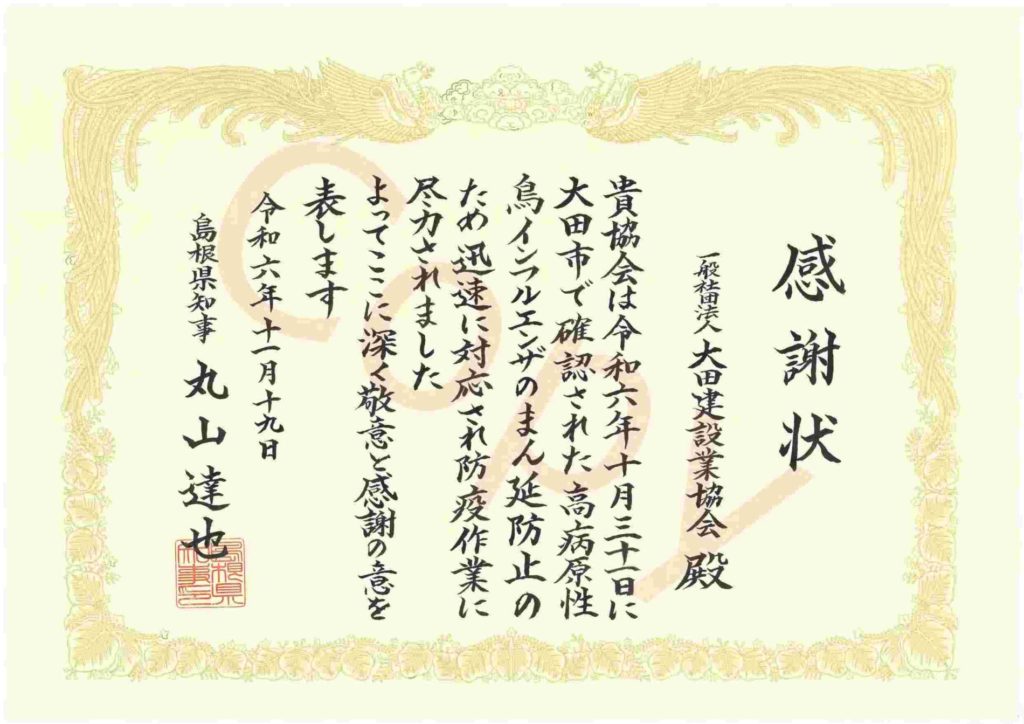 感謝状
一般社団法人 大田建設業協会 殿
貴協会は令和六年十月三十一日に
大田市で確認された高病原性
鳥インフルエンザのまん延防止の
ため迅速に対応され防疫作業に
尽力されました
よってここに深く敬意と感謝の意を
表します
令和六年十一月十九日
島根県知事 丸山達也
島根県知事印
COPY